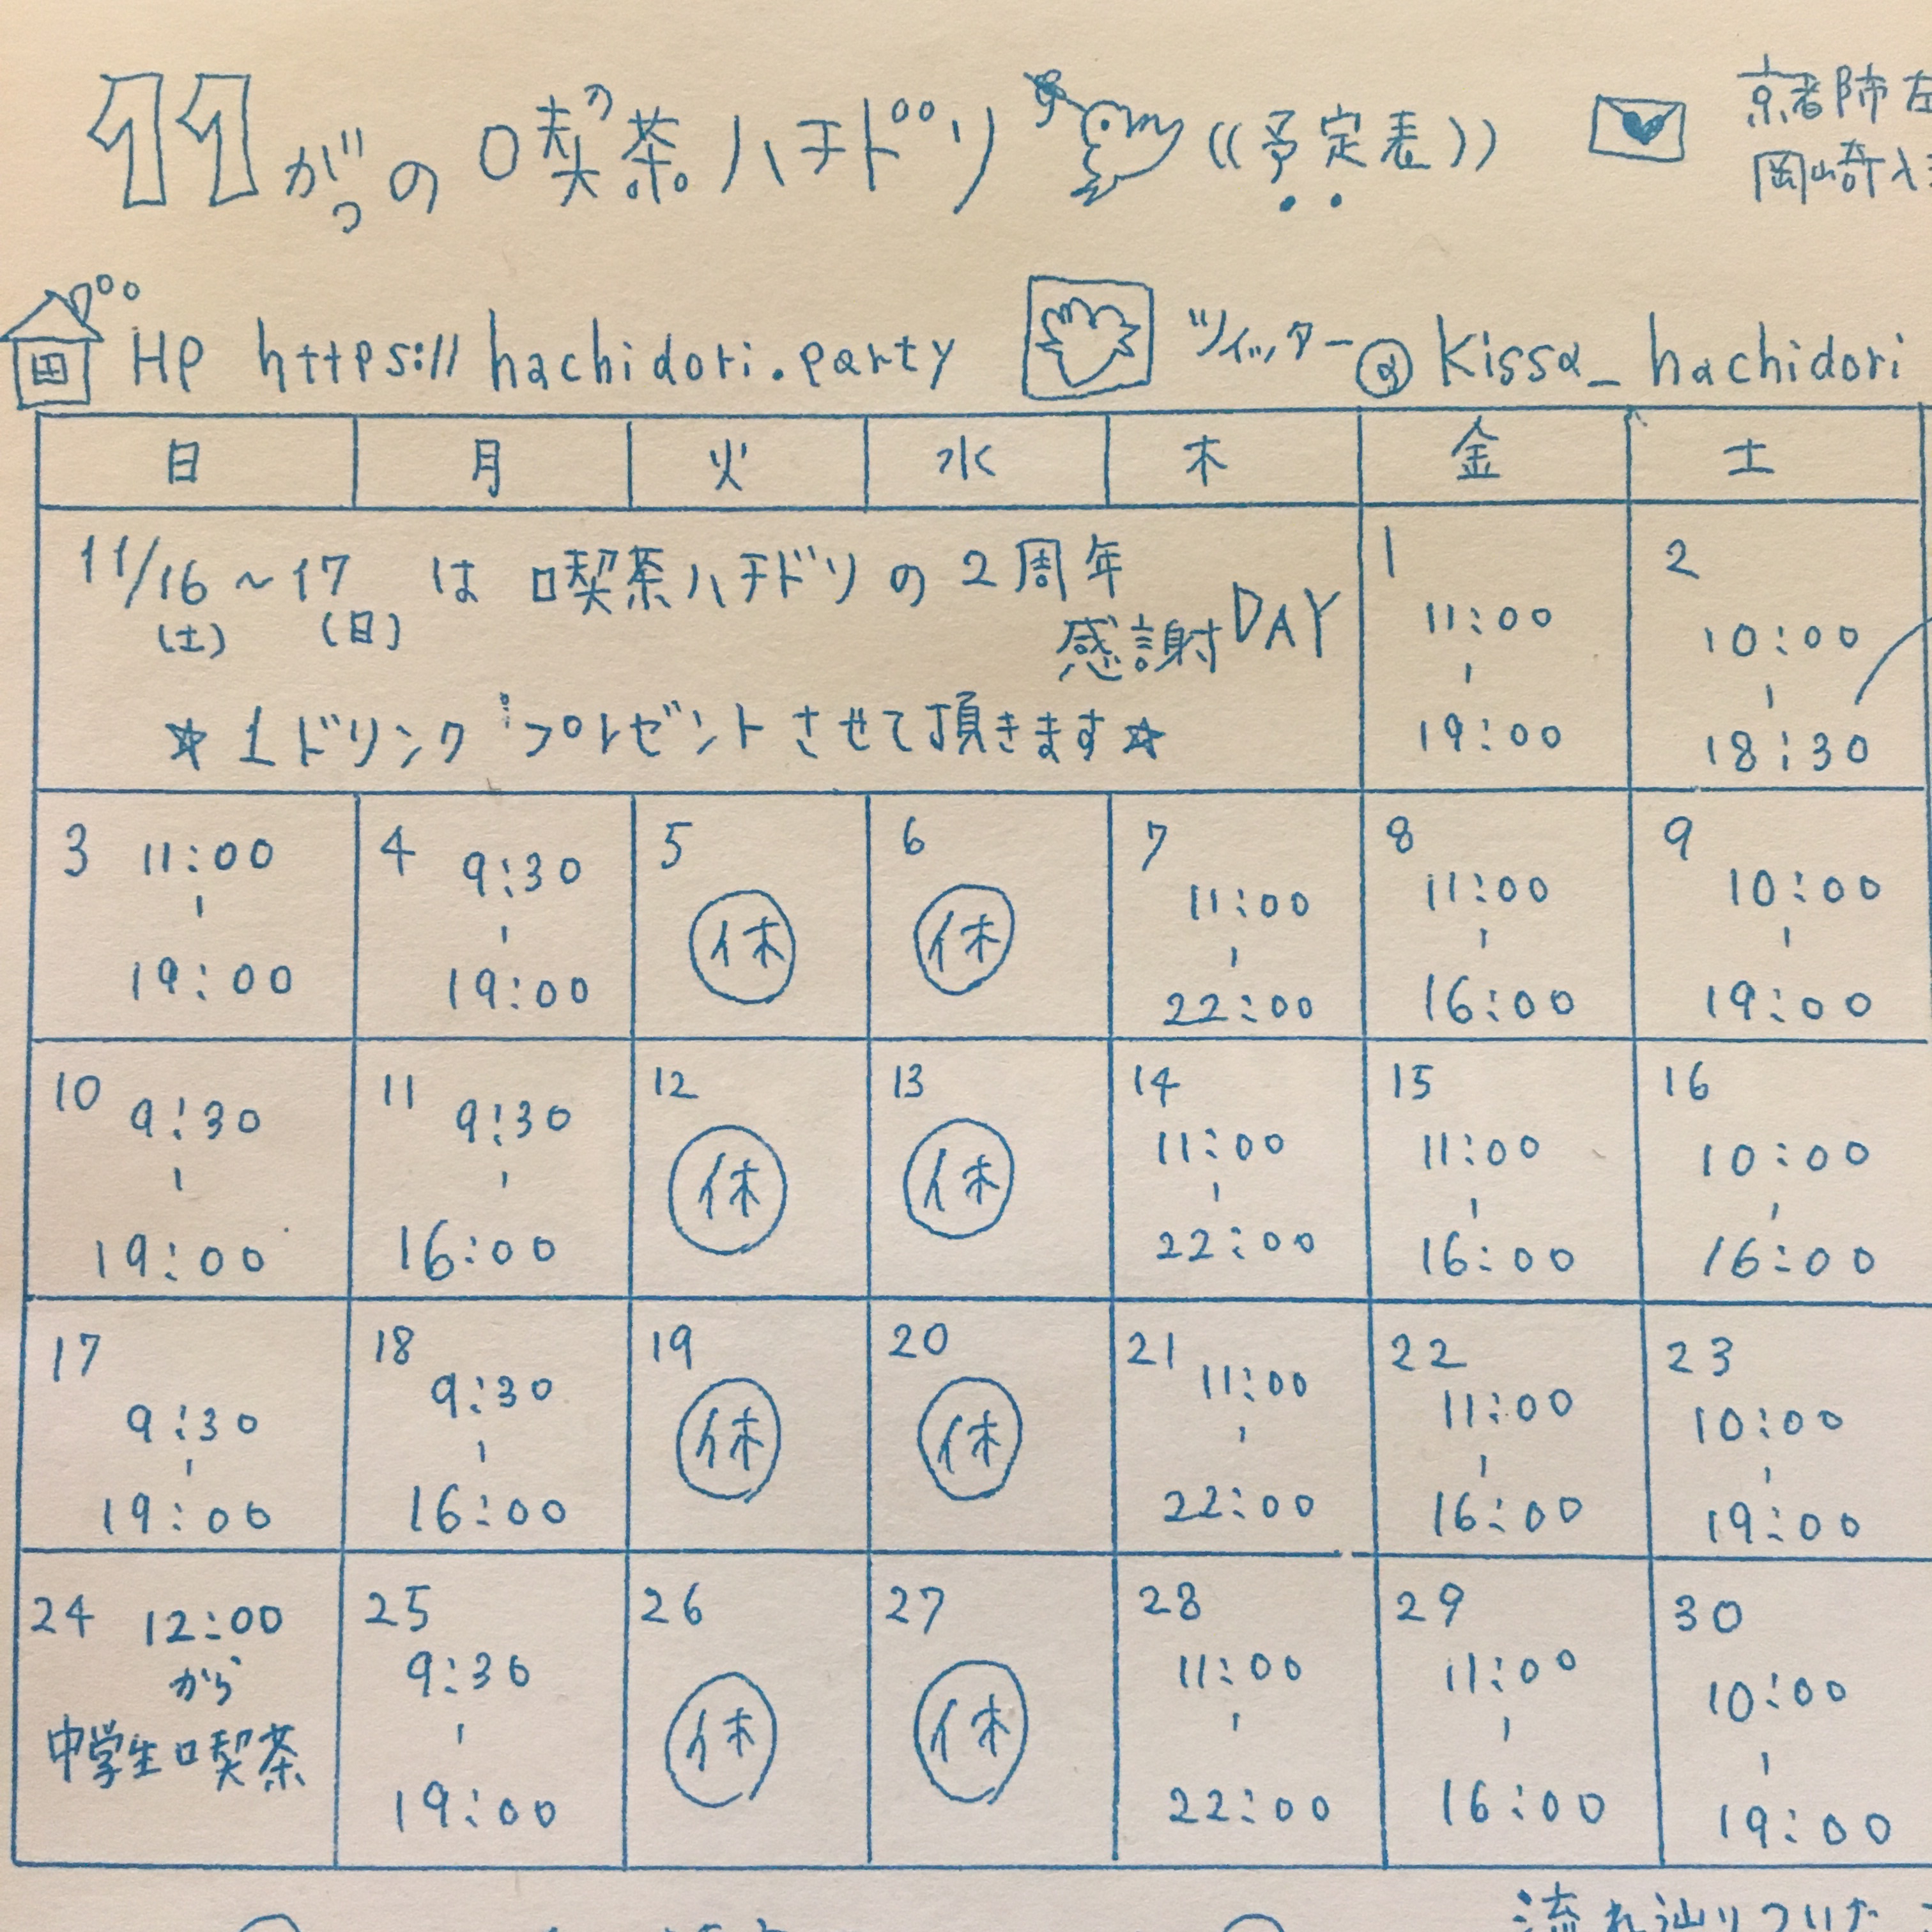 11がつの 喫茶ハチドリ ((予定表))
京都市左
岡崎入
HP https://hachidori.party ツイッター@kissa_hachidori
日 月 火 水 木 金 土
11/16~17 は 喫茶ハチドリの2周年
(土) (日)
感謝DAY
☆1ドリンクプレゼントさせて頂きます☆
1
11:00
-
19:00
2
10:00
-
18:30
3 11:00
-
19:00
4 9:30
-
19:00
5
休
6
休
7
11:00
-
22:00
8
11:00
-
16:00
9
10:00
-
19:00
10 9:30
-
19:00
11 9:30
-
16:00
12
休
13
休
14
11:00
-
22:00
15
11:00
-
16:00
16
10:00
-
16:00
17
9:30
-
19:00
18
9:30
-
16:00
19
休
20
休
21 11:00
-
22:00
22
11:00
-
16:00
23
10:00
-
19:00
24 12:00
から
中学生喫茶
25
9:30
-
19:00
26
休
27
休
28
11:00
-
22:00
29
11:00
-
16:00
30
10:00
-
19:00
流れ辿りついた